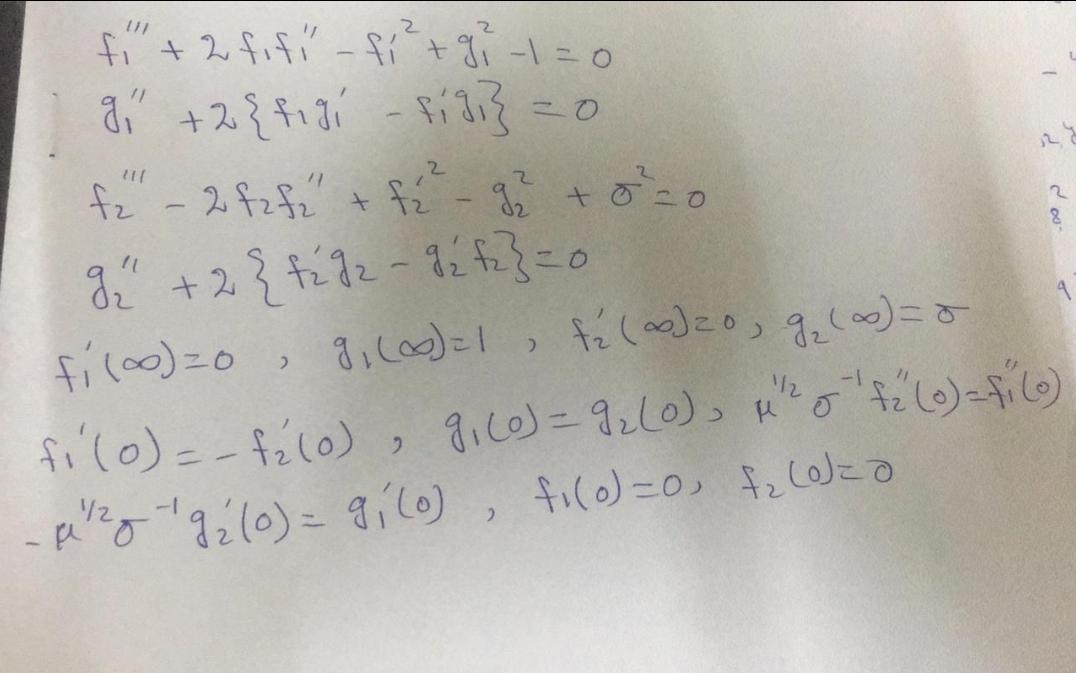 f₁''' + 2 f₁f₁'' - f₁'² + g₁² - 1 = 0
g₁'' + 2{f₁g₁' - f₁'g₁} = 0
f₂''' - 2 f₂f₂'' + f₂'² - g₂² + σ² = 0
g₂'' + 2{f₂'g₂ - g₂'f₂} = 0
f₁'(∞) = 0 , g₁(∞) = 1 , f₂'(∞) = 0 , g₂(∞) = σ
f₁'(0) = - f₂'(0) , g₁(0) = g₂(0) , μ^1/2 σ^-1 f₂''(0) = f₁''(0)
- μ^1/2 σ^-1 g₂'(0) = g₁'(0) , f₁(0) = 0 , f₂(0) = 0